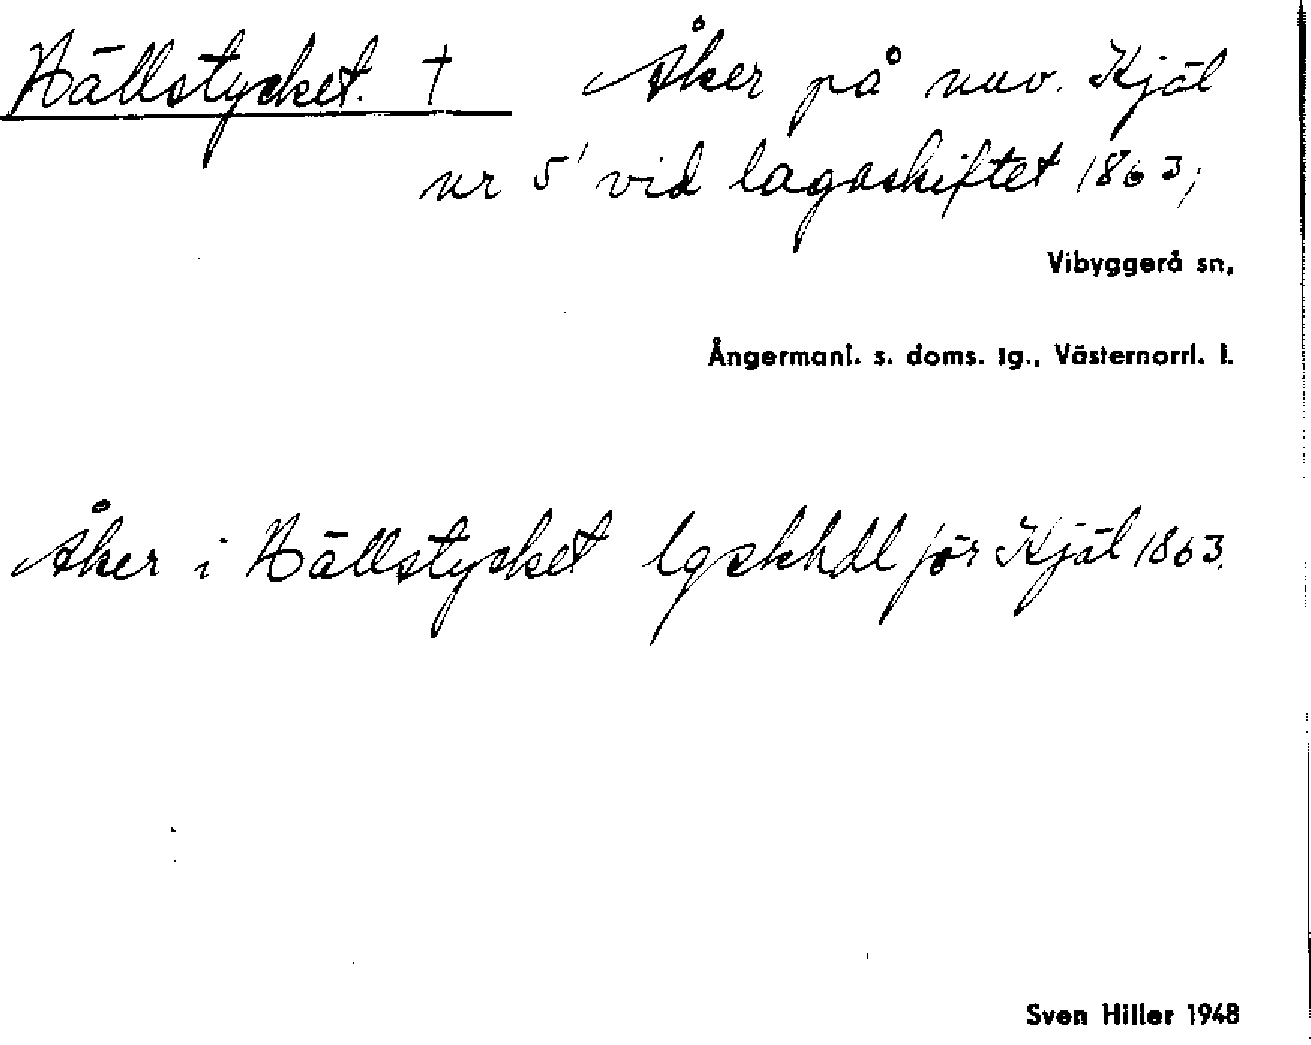 Hällstycket. † Åker på nuv. Kjäl
nr 5 vid lagaskiftet 1863,
Vibyggerå sn,
Ångermanl. s. doms. tg., Västernorrl. l.
Åker i Hällstycket lgskhdl för Kjäl 1863.
Sven Hiller 1948